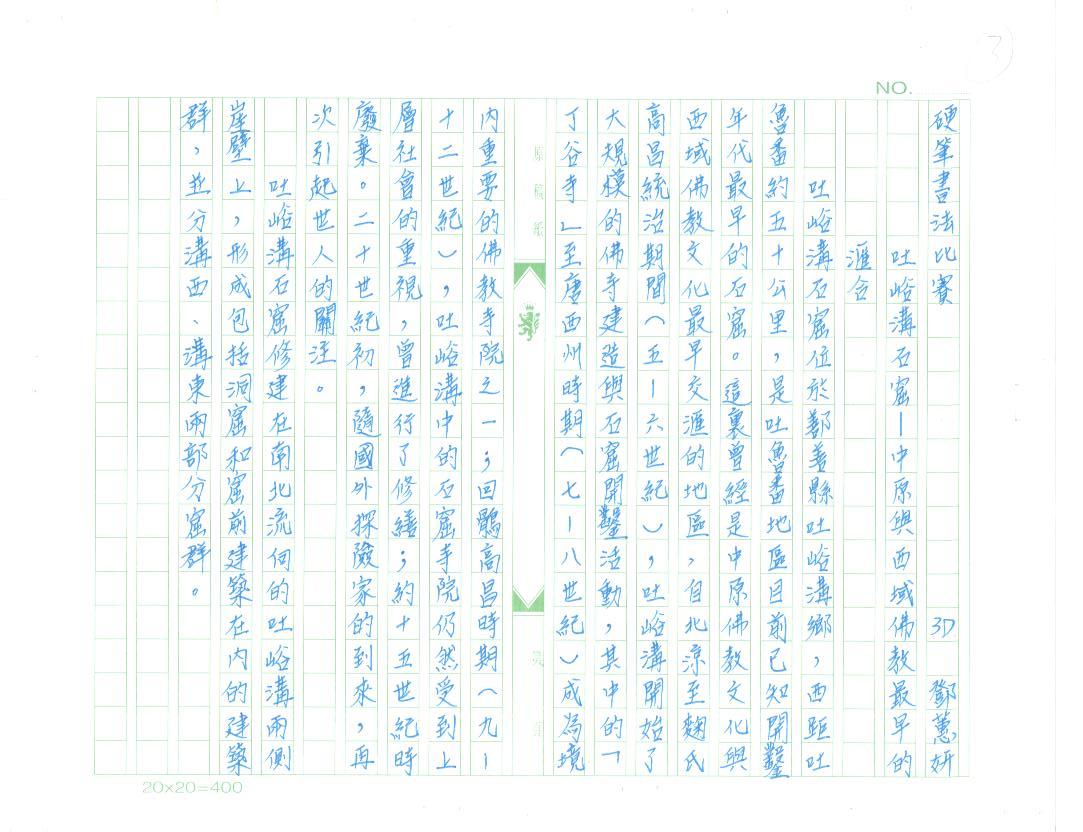 3
NO.
硬筆書法比賽 3D 鄧蕙妍
吐峪溝石窟—中原與西域佛教最早的
滙合
吐峪溝石窟位於鄯善縣吐峪溝鄉，西距吐
魯番約五十公里，是吐魯番地區目前已知開鑿
年代最早的石窟。這裏曾經是中原佛教文化與
西域佛教文化最早交滙的地區，自北涼至麴氏
高昌統治期間（五—六世紀），吐峪溝開始了
大規模的佛寺建造與石窟開鑿活動，其中的「
丁谷寺」至唐西州時期（七—八世紀）成為境
原稿紙
內重要的佛教寺院之一；回鶻高昌時期（九—
十二世紀），吐峪溝中的石窟寺院仍然受到上
層社會的重視，曾進行了修繕；約十五世紀時
廢棄。二十世紀初，隨國外探險家的到來，再
次引起世人的關注。
吐峪溝石窟修建在南北流向的吐峪溝兩側
崖壁上，形成包括洞窟和窟前建築在內的建築
群，並分溝西、溝東兩部分窟群。
20×20=400